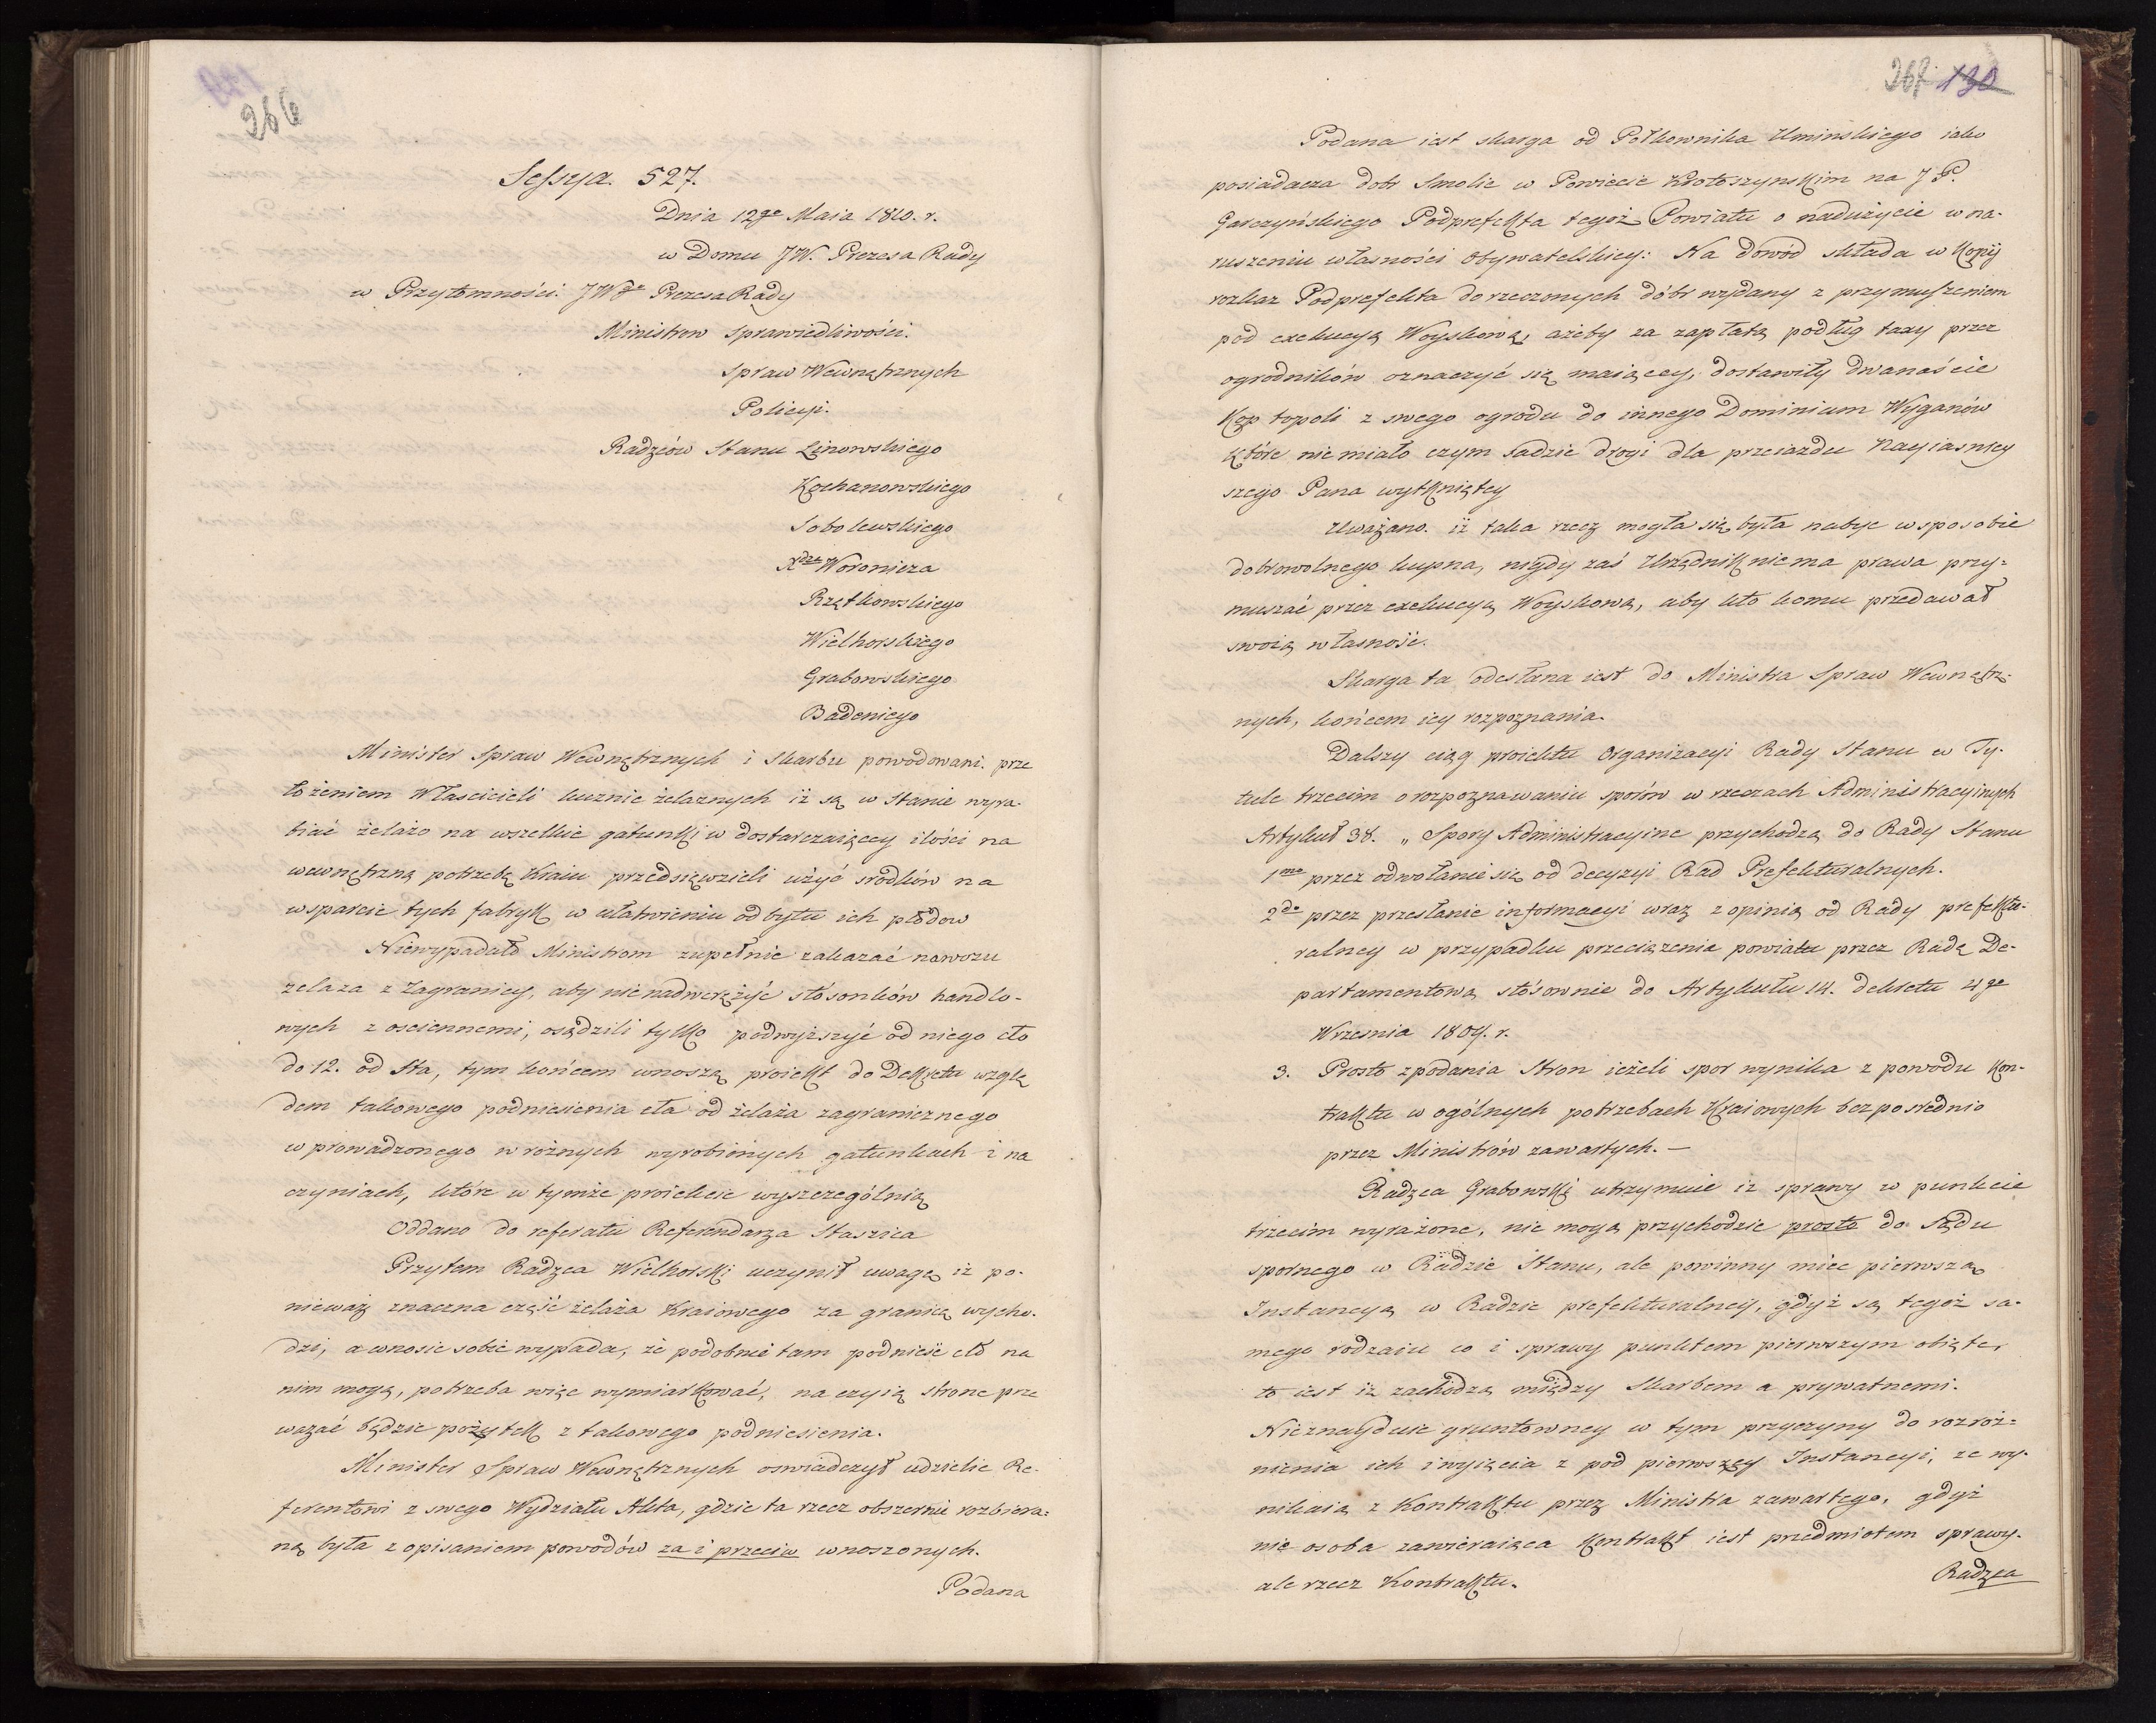 266
Sessya. 527.
Dnia 12go Maia 1810. r.
w Domu JW. Prezesa Rady
w Przytomności. JWgo Prezesa Rady
Ministrow Sprawiedliwości.
Spraw Wewnętrznych
Policyi.
Radzców Stanu Linowskiego
Kochanowskiego
Sobolewskiego
Xdza Woronicza
Rzątkowskiego
Wielhorskiego
Grabowskiego
Badeniego
Minister Spraw Wewnętrznych i Skarbu powodowani. prze
łożeniem Własciceli kuznic żelaznych iż są w Stanie wyra-
biać żelazo na wszelkie gatunki w dostarczaiącey ilości na
wewnętrzną potrzebę Kraiu przedsięwzieli użyć srodków na
wsparcie tych fabryk w ułatwieniu odbytu ich płodow
Niewypadało Ministrom zupełnie zakazać nawozu
zelaza z Zagranicy, aby nie nadwerężyć stósonków handlo-
wych z osciennemi, osądzili tylko podwyższyć od niego cło
do 12. od Sta, tym końcem wnoszą proiekt do Dekretu wzglę
dem takowego podniesienia cła od żelaza zagranicznego
wprowadzonego w rożnych wyrobionych gatunkach i na
czyniach, które w tymże proiekcie wyszczególnią
Oddano do referatu Referendarza Staszica
Przytem Radzca Wielhorski uczynił uwagę iż po-
nieważ znaczna część żelaza Kraiowego za granicę wycho-
dzi, a wnosic sobie wypada, że podobnie tam podnieść cło na
nim mogą, potrzeba więc wymiarkować, na czyią strone prze
ważać będzie pożytek z takowego podniesienia.
Minister Spraw Wewnętrznych oswiadczył udzielic Re-
ferentowi z swego Wydziału Akta, gdzie ta rzecz obszernie rozbiera-
ną była z opisaniem powodów za i przeciw wnoszonych.
Podana
267 130
Podana iest skarga od Połkownika Uminskiego iako
posiadacza dobr Smolic w Powiecie Krotoszynskim na J P.
Garczyńskiego Podprefekta tegoż Powiatu o nadużycie w na-
ruszeniu własności Obywatelskiey: Na dowód składa w Kopij
rozkaz Podprefekta do rzeczonych dóbr wydany z przymuszeniem
pod exekucyą Woyskową, ażeby za zapłatą podług taxy przez
ogrodników oznaczyć się maiącey, dostawiły dwanaście
Kop topoli z swego ogrodu do innego Dominium Wyganów
które nie miało czym sadzic drogi dla przeiazdu Nayiasniey
szego Pana wytkniętey
Uważano. iż taka rzecz mogła się była nabyc w sposobie
dobrowolnego kupna, nigdy zaś Urzędnik nie ma prawa przy-
muszać przez exekucyą Woyskową, aby kto komu przedawał
swoią własność.
Skarga ta odesłana iest do Ministra Spraw Wewnętrz-
nych, końcem iey rozpoznania.
Dalszy ciąg proiektu Organizacyi Rady Stanu w Ty-
tule trzecim o rozpoznawaniu sporów w rzeczach Administracyinych
Artykuł 38. „ Spory Administracyine przychodzą do Rady Stanu
1mo przez odwołanie się od decyzyi Rad Prefekturalnych.
2do przez przesłanie informacyi wraz z opinią od Rady prefektu-
ralney w przypadku przeciązenia powiatu przez Radę De-
partamentową stósownie do Artykułu 14. dekretu 4go
Wrzesnia 1807. r.
3. Prosto z podania Stron ieżeli spor wynika z powodu Kon-
traktu w ogólnych potrzebach Kraiowych bezposrednio
przez Ministrów zawartych. —
Radzca Grabowski utrzymuie iz sprawy w punkcie
trzecim wyrażone, nie mogą przychodzic prosto do Sądu
spornego w Radzie Stanu, ale powinny miec pierwszą
Instancyą w Radzie prefekturalney, gdyż są tegoż sa-
mego rodzaiu co i sprawy punktem pierwszym obięte,
to iest iż zachodzą między Skarbem a prywatnemi.
Nieznayduie gruntowney w tym przyczyny do rozróż-
nienia ich i wyięcia z pod pierwszey Instancyi, ze wy-
nikaią z Kontraktu przez Ministra zawartego, gdyż
nie osoba zawieraiąca Kontrakt iest przedmiotem sprawy.
ale rzecz Kontraktu.
Radzca